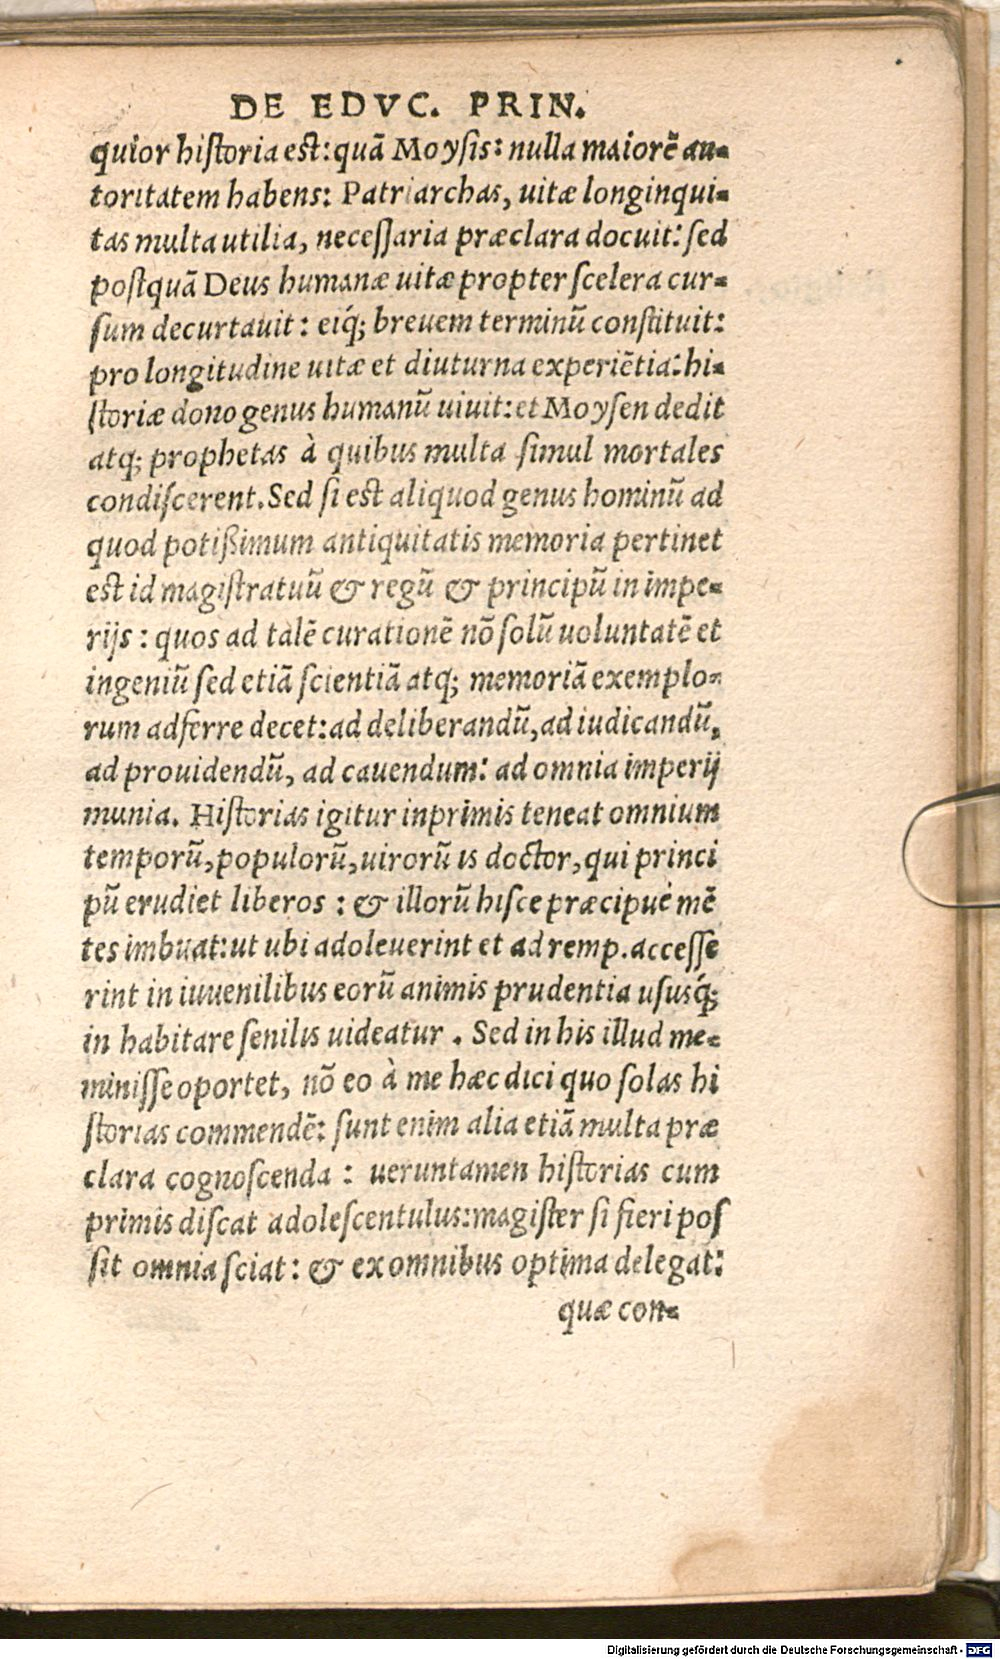 DE EDVC. PRIN.
quior hiſtoria eſt: quā Moyſis: nulla maiorē au-
toritatem habens: Patriarchas, uitæ longinqui-
tas multa utilia, neceſſaria præclara docuit: ſed
poſtquā Deus humanæ uitæ propter ſcelera cur-
ſum decurtauit: eiq́; breuem terminū conſtituit:
pro longitudine uitæ et diuturna experiētia: hi-
ſtoriæ dono genus humanū uiuit: et Moyſen dedit
atq; prophetas à quibus multa ſimul mortales
condiſcerent. Sed ſi eſt aliquod genus hominū ad
quod potißimum antiquitatis memoria pertinet
eſt id magiſtratuū & regū & principū in impe-
rijs: quos ad talē curationē nō ſolū uoluntatē et
ingeniū ſed etiā ſcientiā atq; memoriā exemplo-
rum adferre decet: ad deliberandū, ad iudicandū,
ad prouidendū, ad cauendum: ad omnia imperij
munia. Hiſtorias igitur inprimis teneat omnium
temporū, populorū, uirorū is doctor, qui princi
pū erudiet liberos: & illorū hiſce præcipuè mē
tes imbuat: ut ubi adoleuerint et ad remp. acceſſe
rint in iuuenilibus eorū animis prudentia uſusq́;
in habitare ſenilis uideatur. Sed in his illud me-
miniſſe oportet, nō eo à me hæc dici quo ſolas hi
ſtorias commendē: ſunt enim alia etiā multa præ
clara cognoſcenda: ueruntamen hiſtorias cum
primis diſcat adoleſcentulus: magiſter ſi fieri poſ
ſit omnia ſciat: & ex omnibus optima delegat:
quæ con-
Digitalisierung gefördert durch die Deutsche Forschungsgemeinschaft - DFG